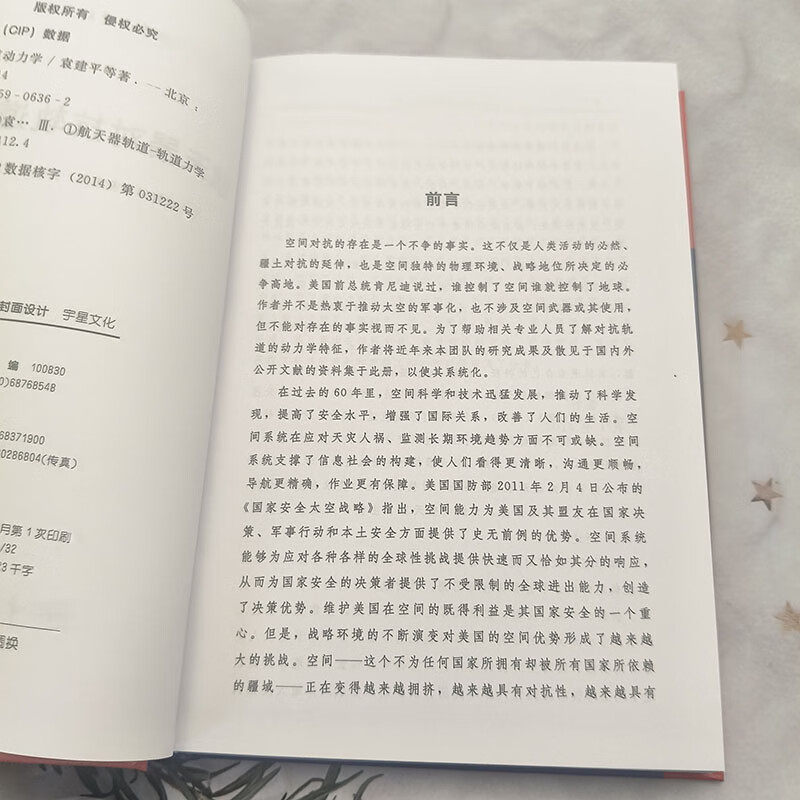 版权所有 侵权必究
(CIP) 数据
动力学 / 袁建平等著. -- 北京:
59-0636-2
袁… Ⅲ. ①航天器轨道-轨道力学
12.4
数据核字 (2014) 第 031222 号
封面设计 宇星文化
编 100830
0)68768548
68371900
0286804(传真)
月第1次印刷
/32
3 千字
调换
前言
空间对抗的存在是一个不争的事实。这不仅是人类活动的必然、
疆土对抗的延伸，也是空间独特的物理环境、战略地位所决定的必
争高地。美国前总统肯尼迪说过，谁控制了空间谁就控制了地球。
作者并不是热衷于推动太空的军事化，也不涉及空间武器或其使用，
但不能对存在的事实视而不见。为了帮助相关专业人员了解对抗轨
道的动力学特征，作者将近年来本团队的研究成果及散见于国内外
公开文献的资料集于此册，以使其系统化。
在过去的 60 年里，空间科学和技术迅猛发展，推动了科学发
现，提高了安全水平，增强了国际关系，改善了人们的生活。空
间系统在应对天灾人祸、监测长期环境趋势方面不可或缺。空间
系统支撑了信息社会的构建，使人们看得更清晰，沟通更顺畅，
导航更精确，作业更有保障。美国国防部 2011 年 2 月 4 日公布的
《国家安全太空战略》指出，空间能力为美国及其盟友在国家决
策、军事行动和本土安全方面提供了史无前例的优势。空间系统
能够为应对各种各样的全球性挑战提供快速而又恰如其分的响应，
从而为国家安全的决策者提供了不受限制的全球进出能力，创造
了决策优势。维护美国在空间的既得利益是其国家安全的一个重
心。但是，战略环境的不断演变对美国的空间优势形成了越来越
大的挑战。空间——这个不为任何国家所拥有却被所有国家所依赖
的疆域——正在变得越来越拥挤，越来越具有对抗性，越来越具有